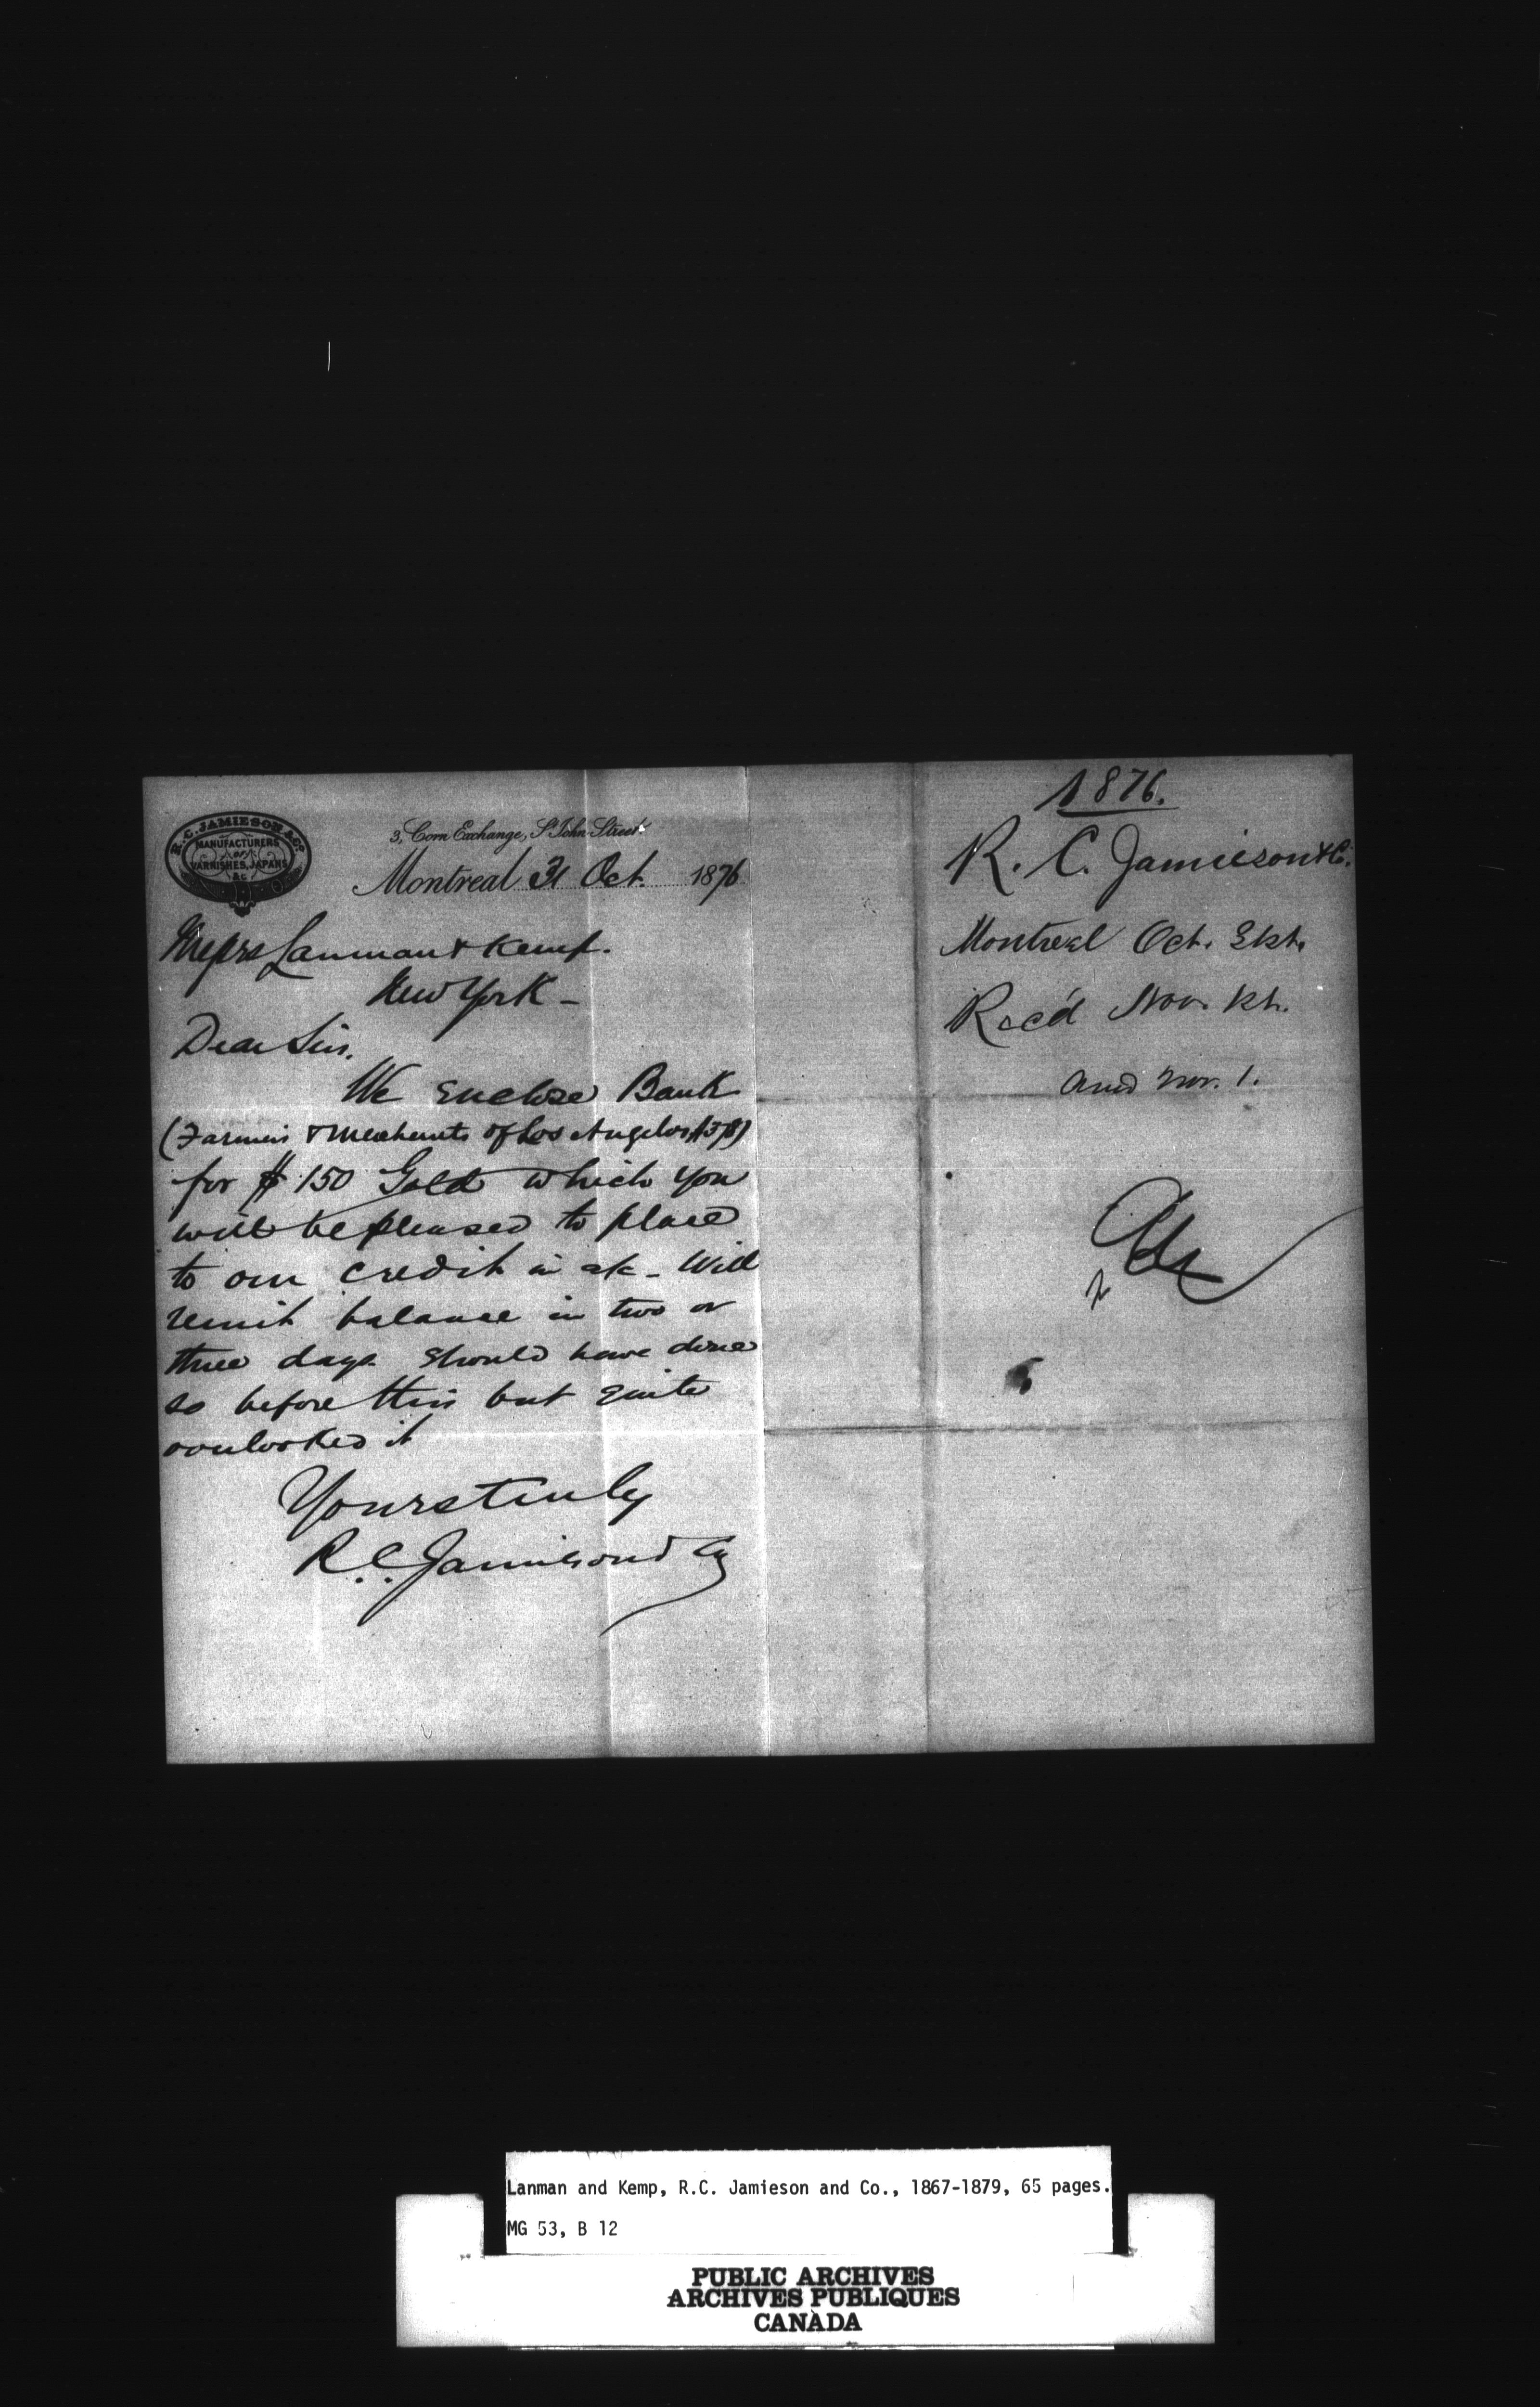 R. C. JAMIESON & Co.
MANUFACTURERS
OF
VARNISHES, JAPANS
&c
3, Corn Exchange, St. John Street.
Montreal 31 Oct. 1876
Messrs Lanman & Kemp.
New York -
Dear Sirs,
We enclose Bank
(Farmers & Merchants of Los Angelos
for $150 Gold which you
will be pleased to place
to our credit in a/c - Will
remit balance in two or
three days. Should have done
so before this but quite
overlooked it
Yours truly
R. C. Jamieson & Co
1876.
R. C. Jamieson & Co.
Montreal Oct. 31st.
Rec'd Nov. 1st.
Ansd Nov. 1.
Lanman and Kemp, R.C. Jamieson and Co., 1867-1879, 65 pages.
MG 53, B 12
PUBLIC ARCHIVES
ARCHIVES PUBLIQUES
CANADA